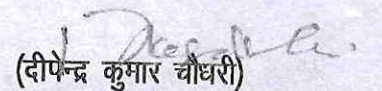 (दीपेन्द्र कुमार चौधरी)